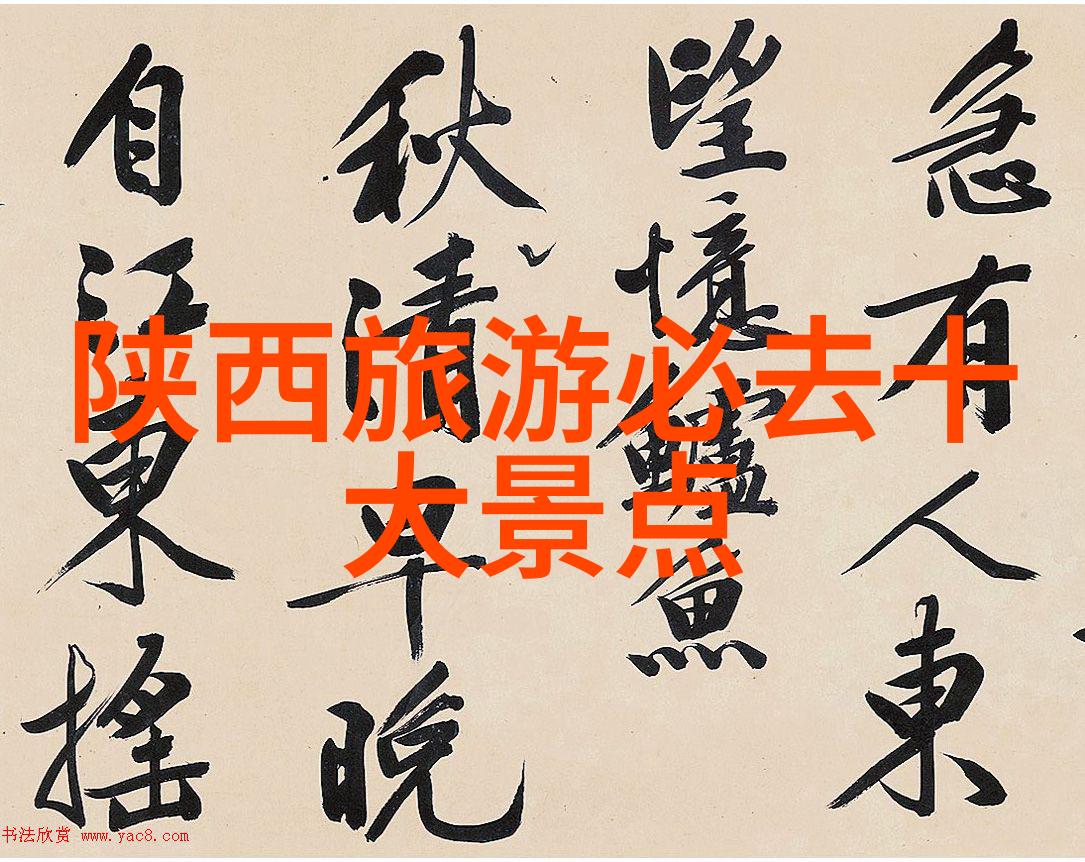 陕西旅游必去十
大景点
急有人東
望憶鱸魚
秋清早晚
自江東搖
书法欣赏 www.yac8.com